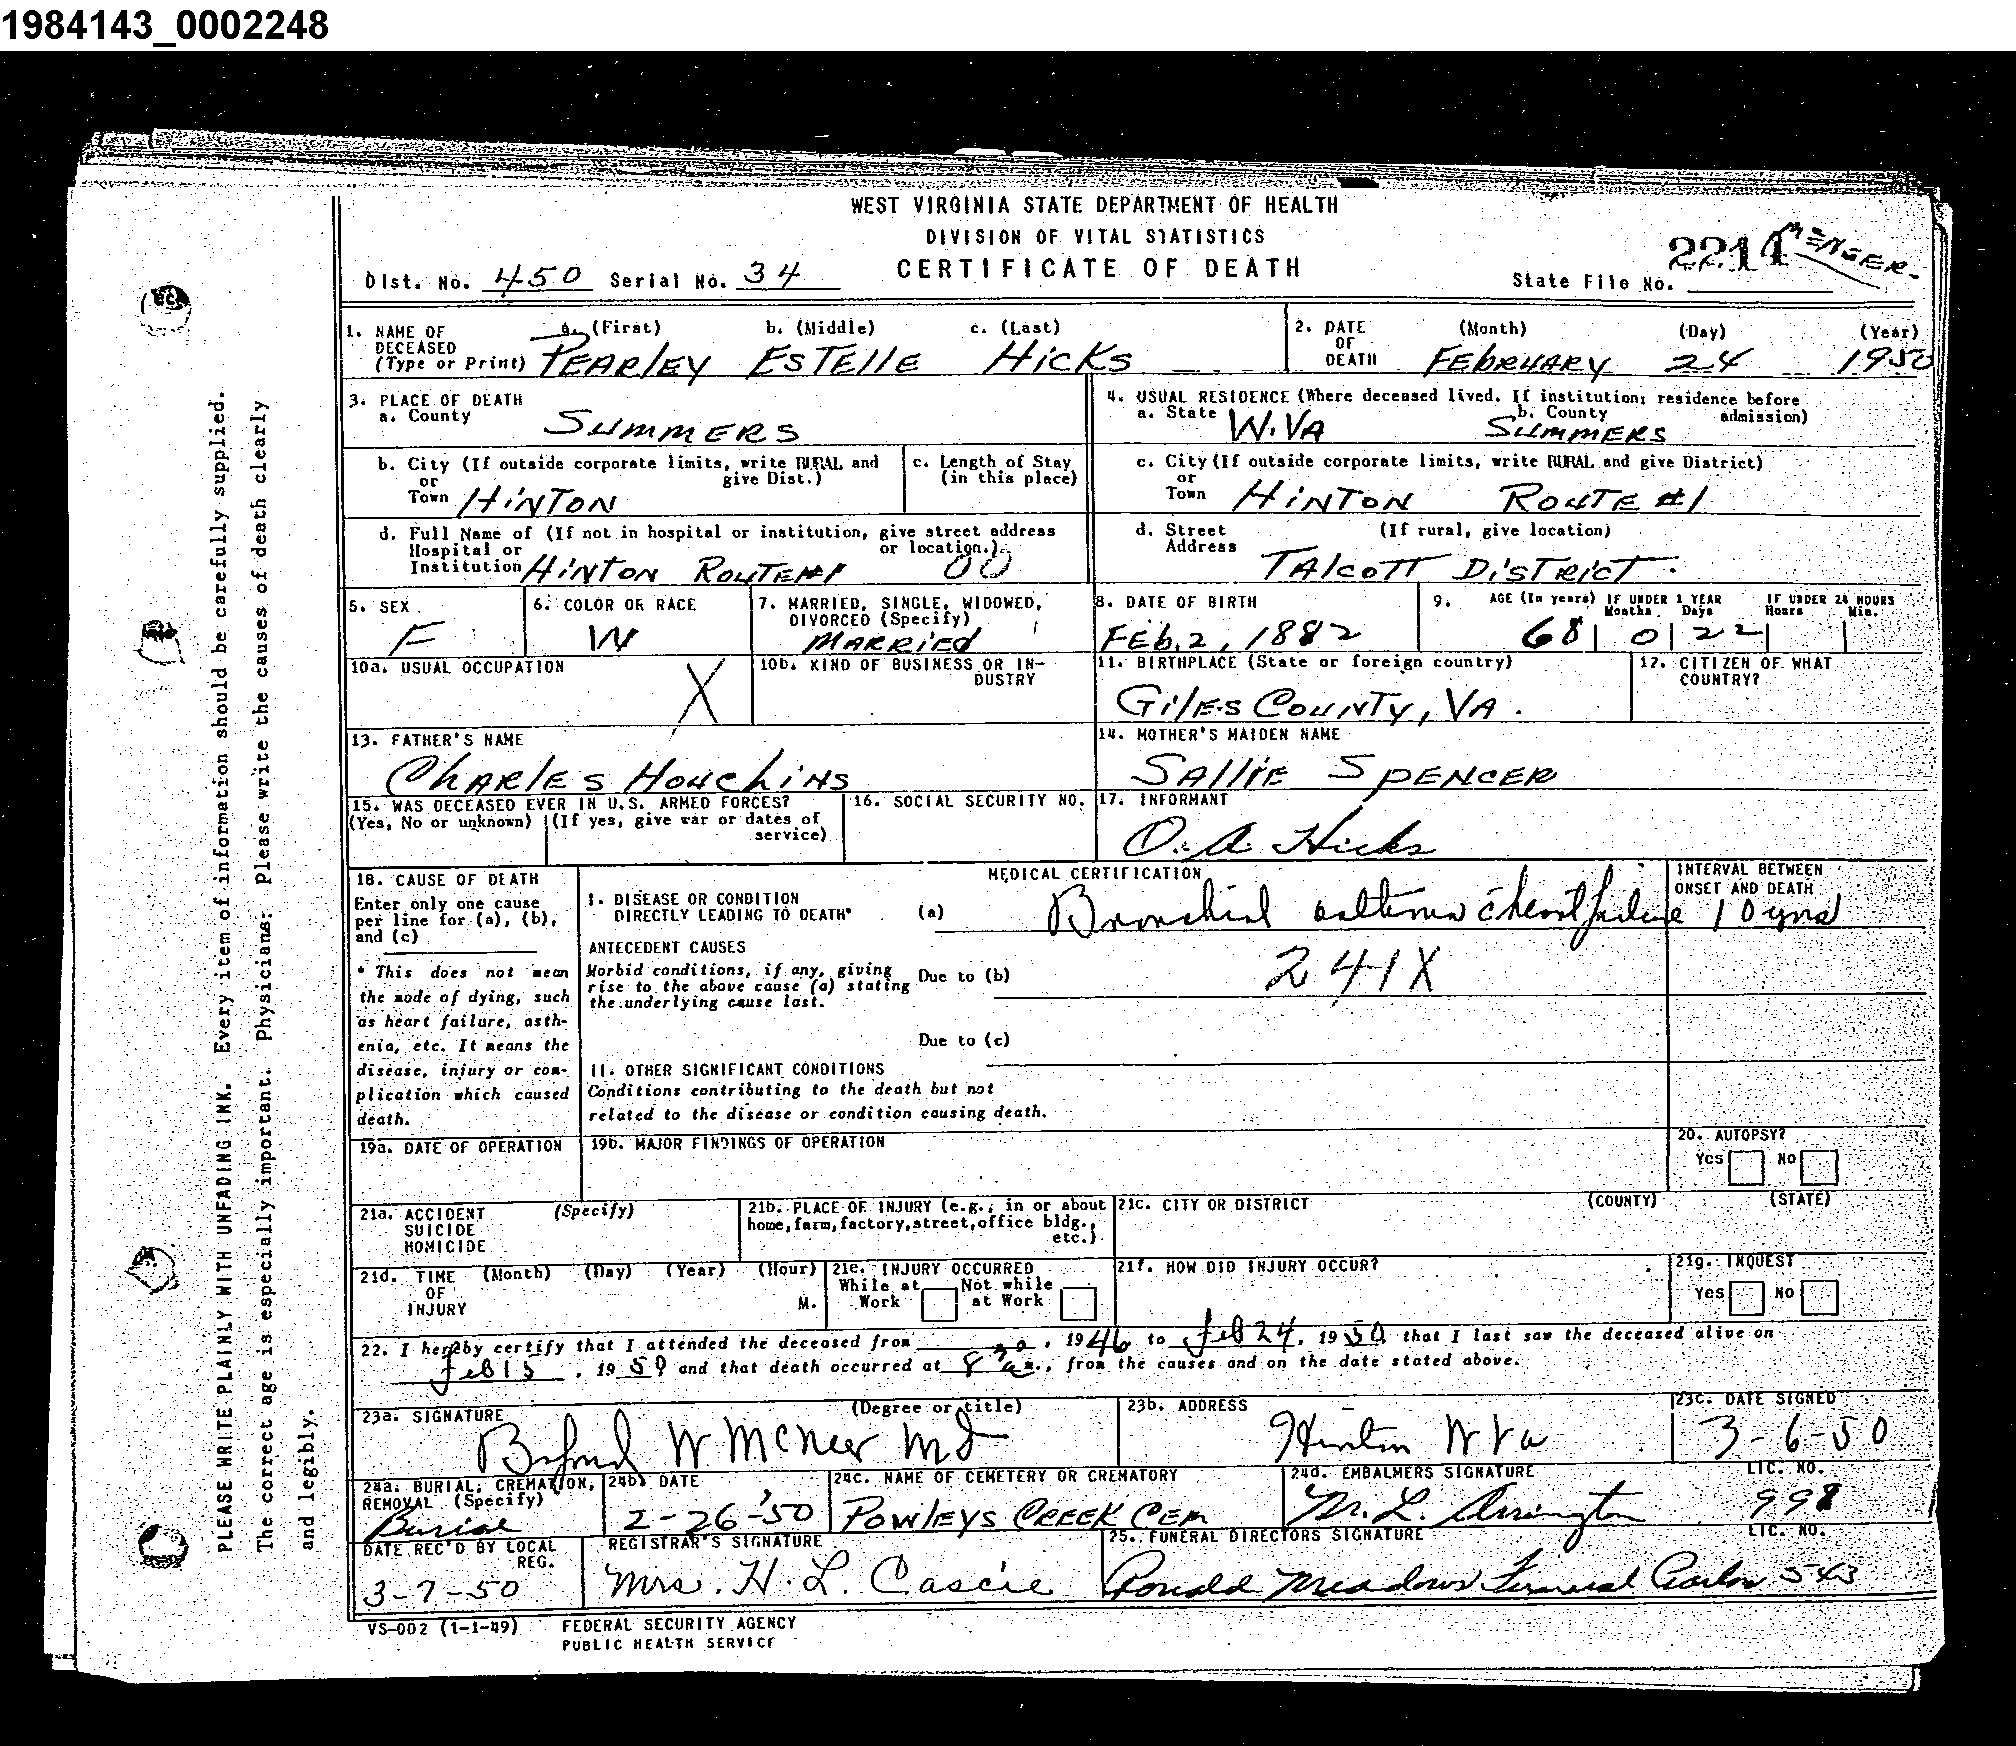 1984143_0002248
WEST VIRGINIA STATE DEPARTMENT OF HEALTH
DIVISION OF VITAL STATISTICS
CERTIFICATE OF DEATH
Dist. No. 450 Serial No. 34
State File No. 2214
MENGER.
1. NAME OF DECEASED (Type or Print) a. (First) b. (Middle) c. (Last)
PEARLEY ESTELLE HICKS
2. DATE OF DEATH (Month) (Day) (Year)
FEBRUARY 24 1950
3. PLACE OF DEATH
a. County SUMMERS
4. USUAL RESIDENCE (Where deceased lived. If institution: residence before admission)
a. State W.VA b. County SUMMERS
b. City (If outside corporate limits, write RURAL and give Dist.)
or Town HINTON
c. Length of Stay (in this place)
c. City (If outside corporate limits, write RURAL and give District)
or Town HINTON ROUTE #1
d. Full Name of (If not in hospital or institution, give street address or location.)
Hospital or Institution HINTON ROUTE #1 00
d. Street Address (If rural, give location)
TALCOTT DISTRICT.
5. SEX F
6. COLOR OR RACE W
7. MARRIED, SINGLE, WIDOWED, DIVORCED (Specify) MARRIED
8. DATE OF BIRTH FEB. 2, 1882
9. AGE (In years) IF UNDER 1 YEAR Months Days IF UNDER 24 HOURS Hours Min.
68 0 22
10a. USUAL OCCUPATION X
10b. KIND OF BUSINESS OR INDUSTRY
11. BIRTHPLACE (State or foreign country)
GILES COUNTY, VA.
12. CITIZEN OF WHAT COUNTRY?
13. FATHER'S NAME
CHARLES HOUCHINS
14. MOTHER'S MAIDEN NAME
SALLIE SPENCER
15. WAS DECEASED EVER IN U.S. ARMED FORCES?
(Yes, No or unknown) (If yes, give war or dates of service)
16. SOCIAL SECURITY NO.
17. INFORMANT
O. A. Hicks
18. CAUSE OF DEATH
Enter only one cause per line for (a), (b), and (c)
* This does not mean the mode of dying, such as heart failure, asthenia, etc. It means the disease, injury or complication which caused death.
MEDICAL CERTIFICATION
INTERVAL BETWEEN ONSET AND DEATH
I. DISEASE OR CONDITION DIRECTLY LEADING TO DEATH* (a) Bronchial asthma c heart failure 10 yrs
ANTECEDENT CAUSES
Morbid conditions, if any, giving rise to the above cause (a) stating the underlying cause last.
Due to (b) 241X
Due to (c)
II. OTHER SIGNIFICANT CONDITIONS
Conditions contributing to the death but not related to the disease or condition causing death.
19a. DATE OF OPERATION
19b. MAJOR FINDINGS OF OPERATION
20. AUTOPSY?
Yes No
21a. ACCIDENT SUICIDE HOMICIDE (Specify)
21b. PLACE OF INJURY (e.g., in or about home, farm, factory, street, office bldg., etc.)
21c. CITY OR DISTRICT (COUNTY) (STATE)
21d. TIME OF INJURY (Month) (Day) (Year) (Hour) M.
21e. INJURY OCCURRED
While at Work Not while at Work
21f. HOW DID INJURY OCCUR?
21g. INQUEST
Yes No
22. I hereby certify that I attended the deceased from , 1946 to Feb 24, 1950 that I last saw the deceased alive on
Feb 15, 1950 and that death occurred at 8 m., from the causes and on the date stated above.
23a. SIGNATURE (Degree or title)
Buford W McNeer MD
23b. ADDRESS
Hinton W Va
23c. DATE SIGNED
3-6-50
24a. BURIAL, CREMATION, REMOVAL (Specify)
Burial
24b. DATE
2-26-'50
24c. NAME OF CEMETERY OR CREMATORY
POWLEYS CREEK CEM
24d. EMBALMERS SIGNATURE LIC. NO.
M. L. Arrington 998
DATE REC'D BY LOCAL REG.
3-7-50
REGISTRAR'S SIGNATURE
Mrs. H. L. Cascie
25. FUNERAL DIRECTORS SIGNATURE LIC. NO.
Ronald Meadows Funeral Parlor 543
VS-002 (1-1-49) FEDERAL SECURITY AGENCY
PUBLIC HEALTH SERVICE
PLEASE WRITE PLAINLY WITH UNFADING INK. Every item of information should be carefully supplied.
The correct age is especially important. Physicians: please write the causes of death clearly
and legibly.